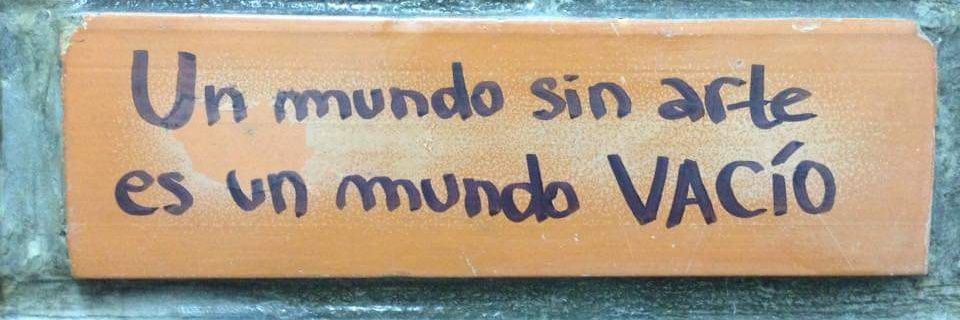 Un mundo sin arte
es un mundo VACÍO